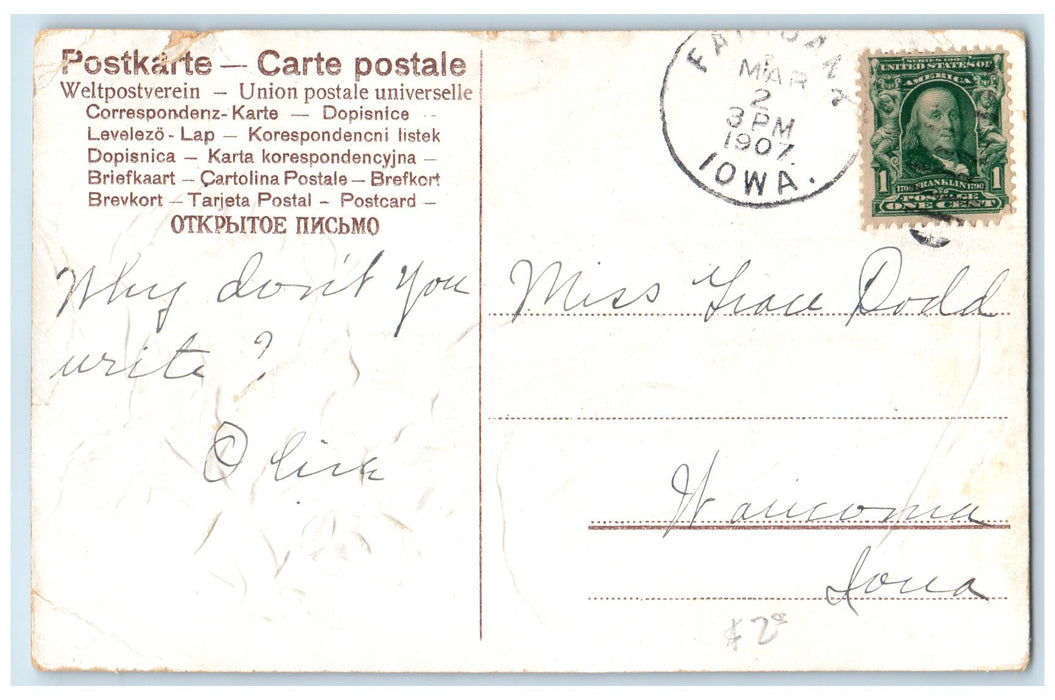 Postkarte — Carte postale
Weltpostverein — Union postale universelle
Correspondenz-Karte — Dopisnice —
Levelező - Lap — Korespondencni listek
Dopisnica — Karta korespondencyjna —
Briefkaart — Cartolina Postale — Brefkort
Brevkort — Tarjeta Postal — Postcard —
ОТКРЫТОЕ ПИСЬМО
Why don't you
write?
Olive
MAR
2
3 PM
1907.
IOWA.
SERIES 1902
UNITED STATES OF
AMERICA
1 1706 FRANKLIN 1790 1
POSTAGE
ONE CENT
Miss Grace Dodd
Waucoma
Iowa
$2